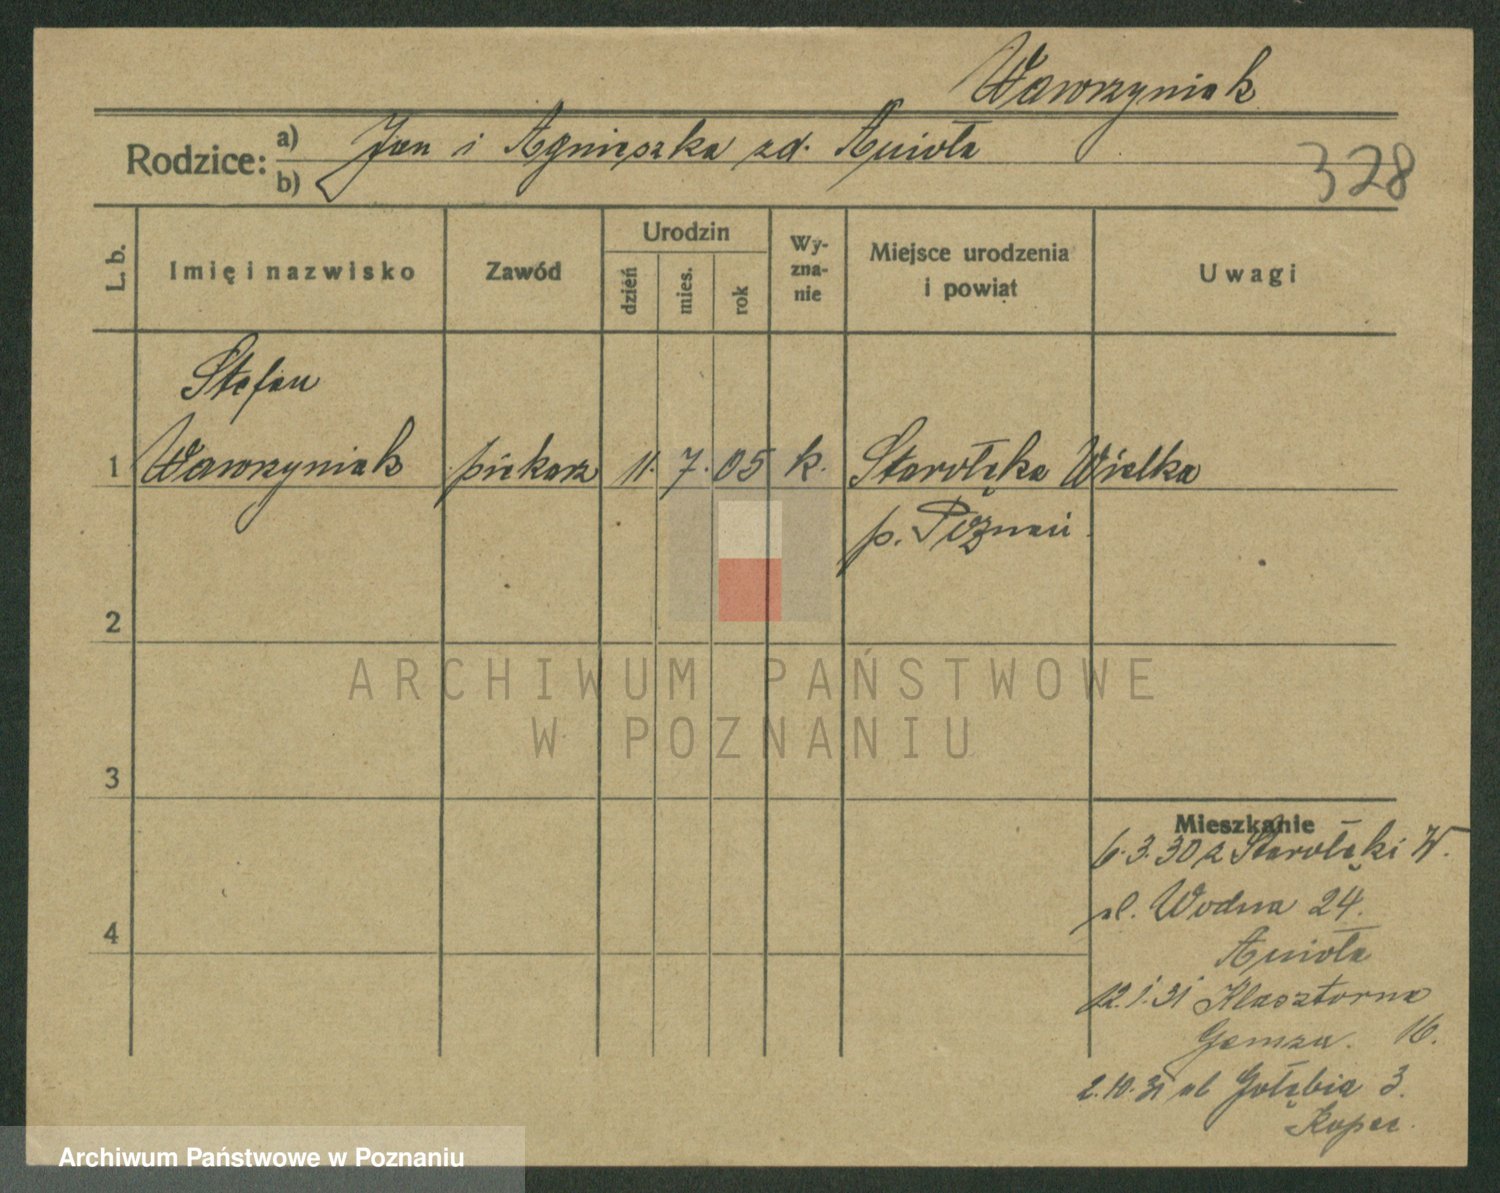 Wawrzyniak
Rodzice: a) Jan i Agnieszka zd. Anioła
b)
328
L. b.
Imię i nazwisko
Zawód
Urodzin
dzień
mies.
rok
Wy-
zna-
nie
Miejsce urodzenia
i powiat
Uwagi
Stefan
1 Wawrzyniak piekarz 11. 7. 05 k. Starołęka Wielka
p. Poznań
2
ARCHIWUM PAŃSTWOWE
W POZNANIU
3
Mieszkanie
6.3.30 z Starołęki W.
ul. Wodna 24.
4
Anioła
12.1.31 Klasztorna
16.
2.10.31 ul Gołębia 3.
Kopec.
Archiwum Państwowe w Poznaniu